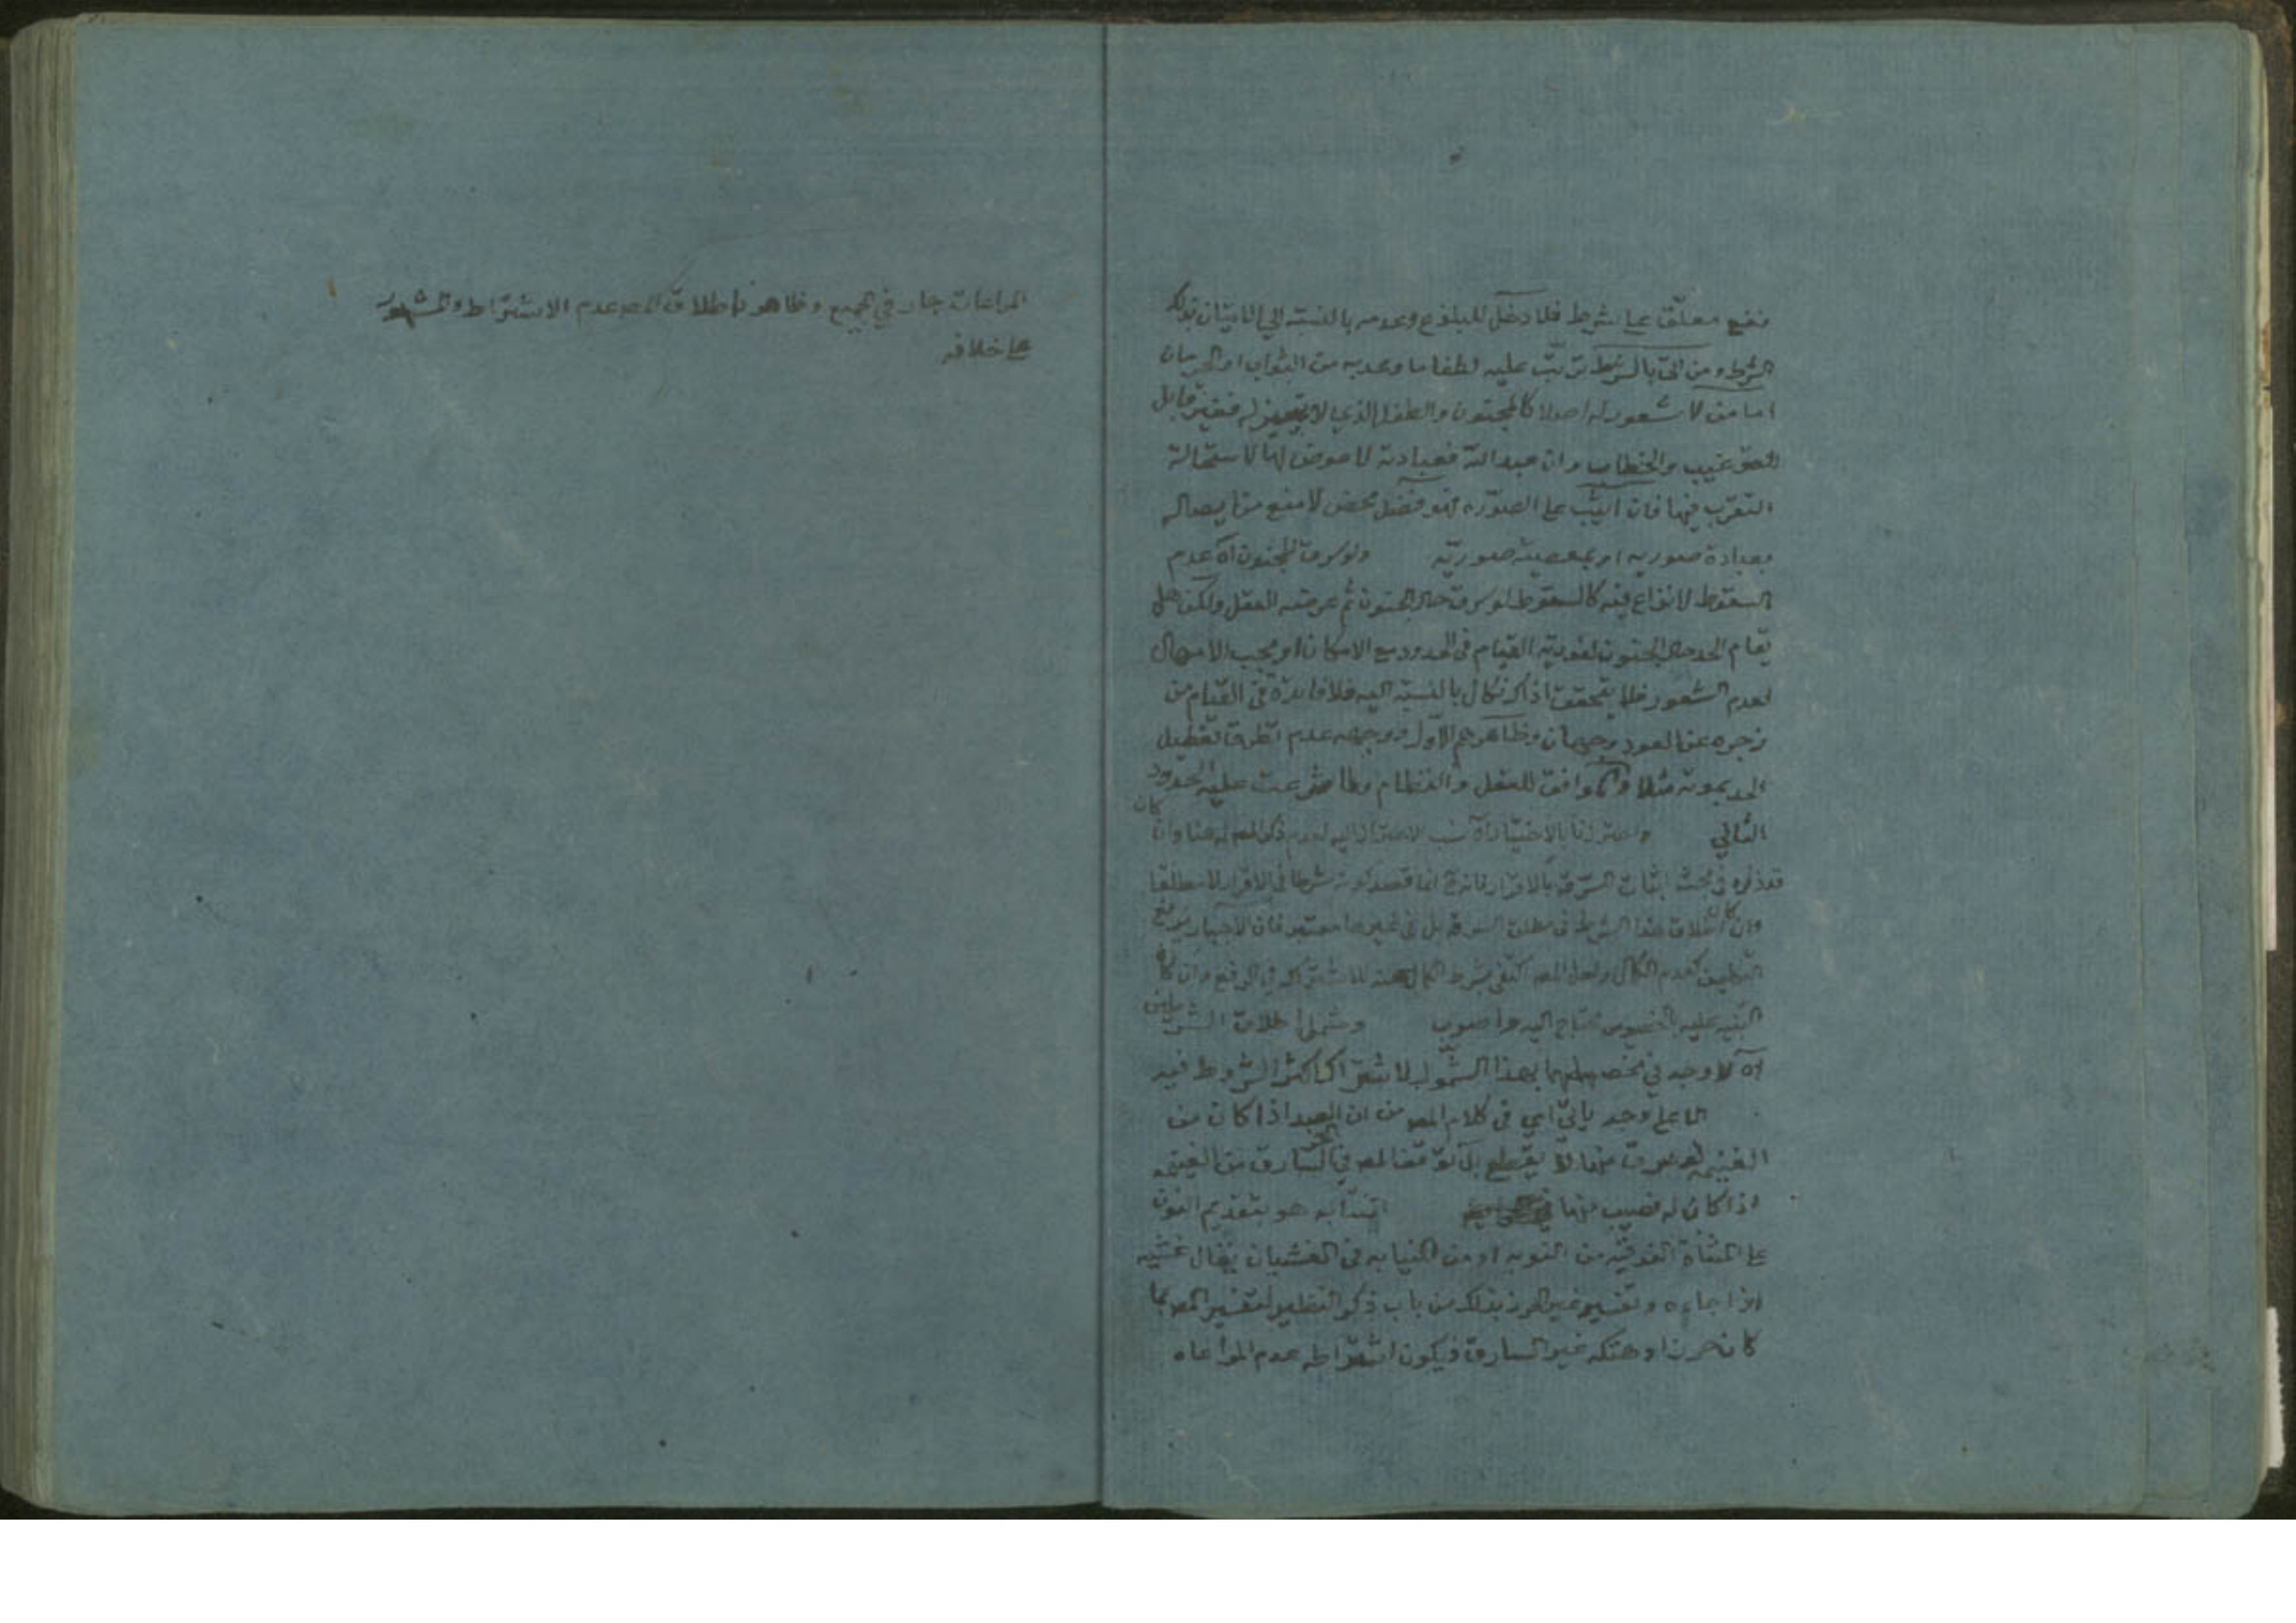 نفع معلّق على شرط فلا دخل للبلوغ وعدمه بالنسبة الى الاتيان بذلك
الشرط ومن اتى بالشرط ترتّب عليه لطفا ما وعد به من الثواب او الحرمان
اما من لا شعور له اصلا كالمجنون والطفل الذي لا تميز له فغير قابل
للترغيب والخطاب وان عبد الله فعبادته لا عوض لها لاستحالة
التقرّب فيها فان اثيب على الصورة فهو فضل محض لا منع من ايصاله
بعبادة صورية او بمعصية صوريّة ولو سرق المجنون اه عدم
السقوط لا نزاع فيه كالسقوط لو سرق حال الجنون ثم عرضه العقل ولكن هل
يقام الحد حال الجنون لفورية القيام في الحدود مع الامكان او يجب الامهال
لعدم الشعور فلا يتحقق اذا نكال بالنسبة اليه فلا فايدة في القيام من
زجره عن العود وجهان وظاهرهم الاول ووجهه عدم تطرق تعطيل
الحد بموته مثلا والموافق للعقل والنظام وما شرعت عليه الحدود
الثاني واحترزنا بالاختيار اه لعدم ذكر المص له هنا وان كان
قد ذكره في بحث اثبات السرقة بالاقرار فانه انما قصد كونه شرطا في الاقرار لا مطلقا
وان كان اطلاق هذا الشرط في مطلق السرقة بل في غيرها معتبر فان الاجبار يرفع
التكليف كعدم الكمال ولعل المص اكتفى بشرط الكمال عنه للاشتراك في الرفع وان كان
التنبيه عليه بالخصوص محتاج اليه واصوب وشمل اطلاق الشرطين
اه لا وجه في تخصيصهما بهذا الشمول لاشتراك اكثر الشروط فيه
الا على وجه ياتي اي في كلام المص من ان العبد اذا كان من
الغنيمة لو سرق منها لا يقطع بل توقف المص في الحر السارق من الغنيمة
اذا كان له نصيب منها انتدابه هو بتقديم النون
على المثناة الفوقية من النوبه او من النيابه في الغشيان يقال غشيه
اذا جاءه وتفسير غير الحرز بذلك من باب ذكر النظير لتفسير المص بما
كان حرزا وهتكه غير السارق فيكون اشتراط عدم المراعاه
المراعات جار في الجميع وظاهر اطلاق المص عدم الاشتراط والمشهور
على خلافه